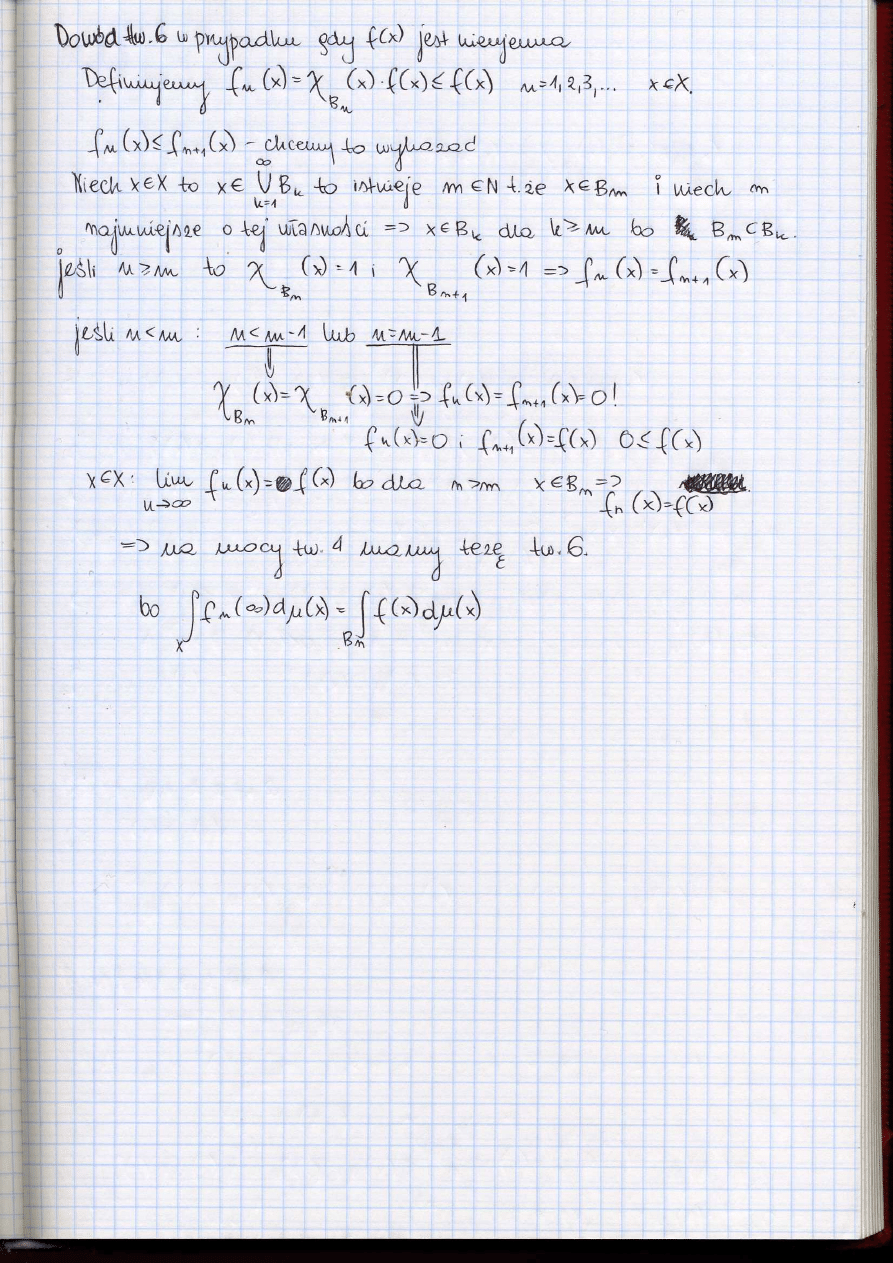 Dowód tw. 6 w przypadku gdy f(x) jest nieujemna
Definiujemy fₙ(x) = χ_{Bₙ}(x)·f(x) ≤ f(x) n=1,2,3,... x∈X.
fₙ(x) ≤ fₙ₊₁(x) – chcemy to wykazać
Niech x∈X to x∈ ⋃_{k=1}^{∞} Bₖ to istnieje m∈N t.że x∈Bₘ i niech m
najmniejsze o tej własności => x∈Bₖ dla k≥m bo Bₘ⊂Bₖ.
jeśli n≥m to χ_{Bₙ}(x)=1 i χ_{Bₙ₊₁}(x)=1 => fₙ(x)=fₙ₊₁(x)
jeśli n<m : n<m-1 lub n=m-1
χ_{Bₙ}(x)=χ_{Bₙ₊₁}(x)=0 => fₙ(x)=fₙ₊₁(x)=0!
fₙ(x)=0 i fₙ₊₁(x)=f(x) 0≤f(x)
x∈X: lim_{n→∞} fₙ(x)=f(x) bo dla n>m x∈Bₙ =>
fₙ(x)=f(x)
=> na mocy tw. 4 mamy tezę tw. 6.
bo ∫_X fₙ(∞)dμ(x) = ∫_{Bₙ} f(x)dμ(x)